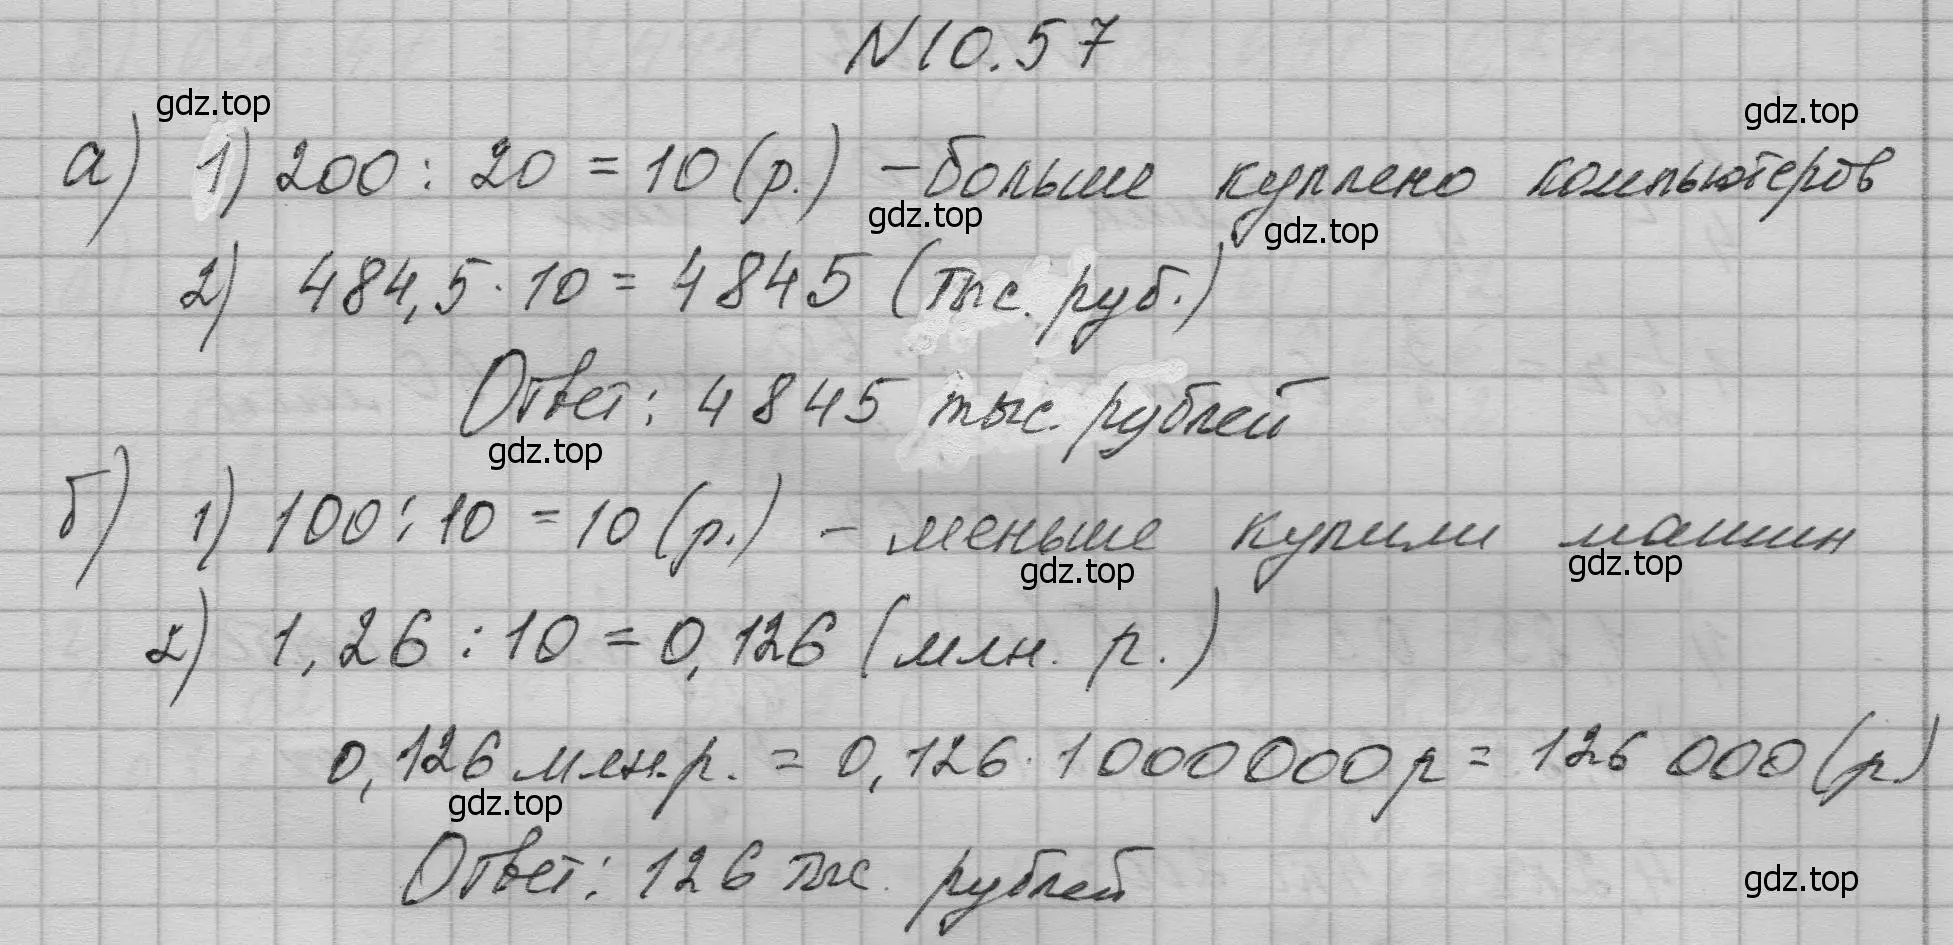 N10.57
gdz.top
gdz.top
а) 1) 200 : 20 = 10 (р.) – больше куплено компьютеров
gdz.top
gdz.top
2) 484,5 · 10 = 4845 (тыс. руб.)
Ответ: 4845 тыс. рублей
gdz.top
б) 1) 100 : 10 = 10 (р.) – меньше купили машин
gdz.top
gdz.top
2) 1,26 : 10 = 0,126 (млн. р.)
0,126 млн.р. = 0,126 · 1000000 р = 126 000 (р.)
gdz.top
Ответ: 126 тыс. рублей
gdz.top